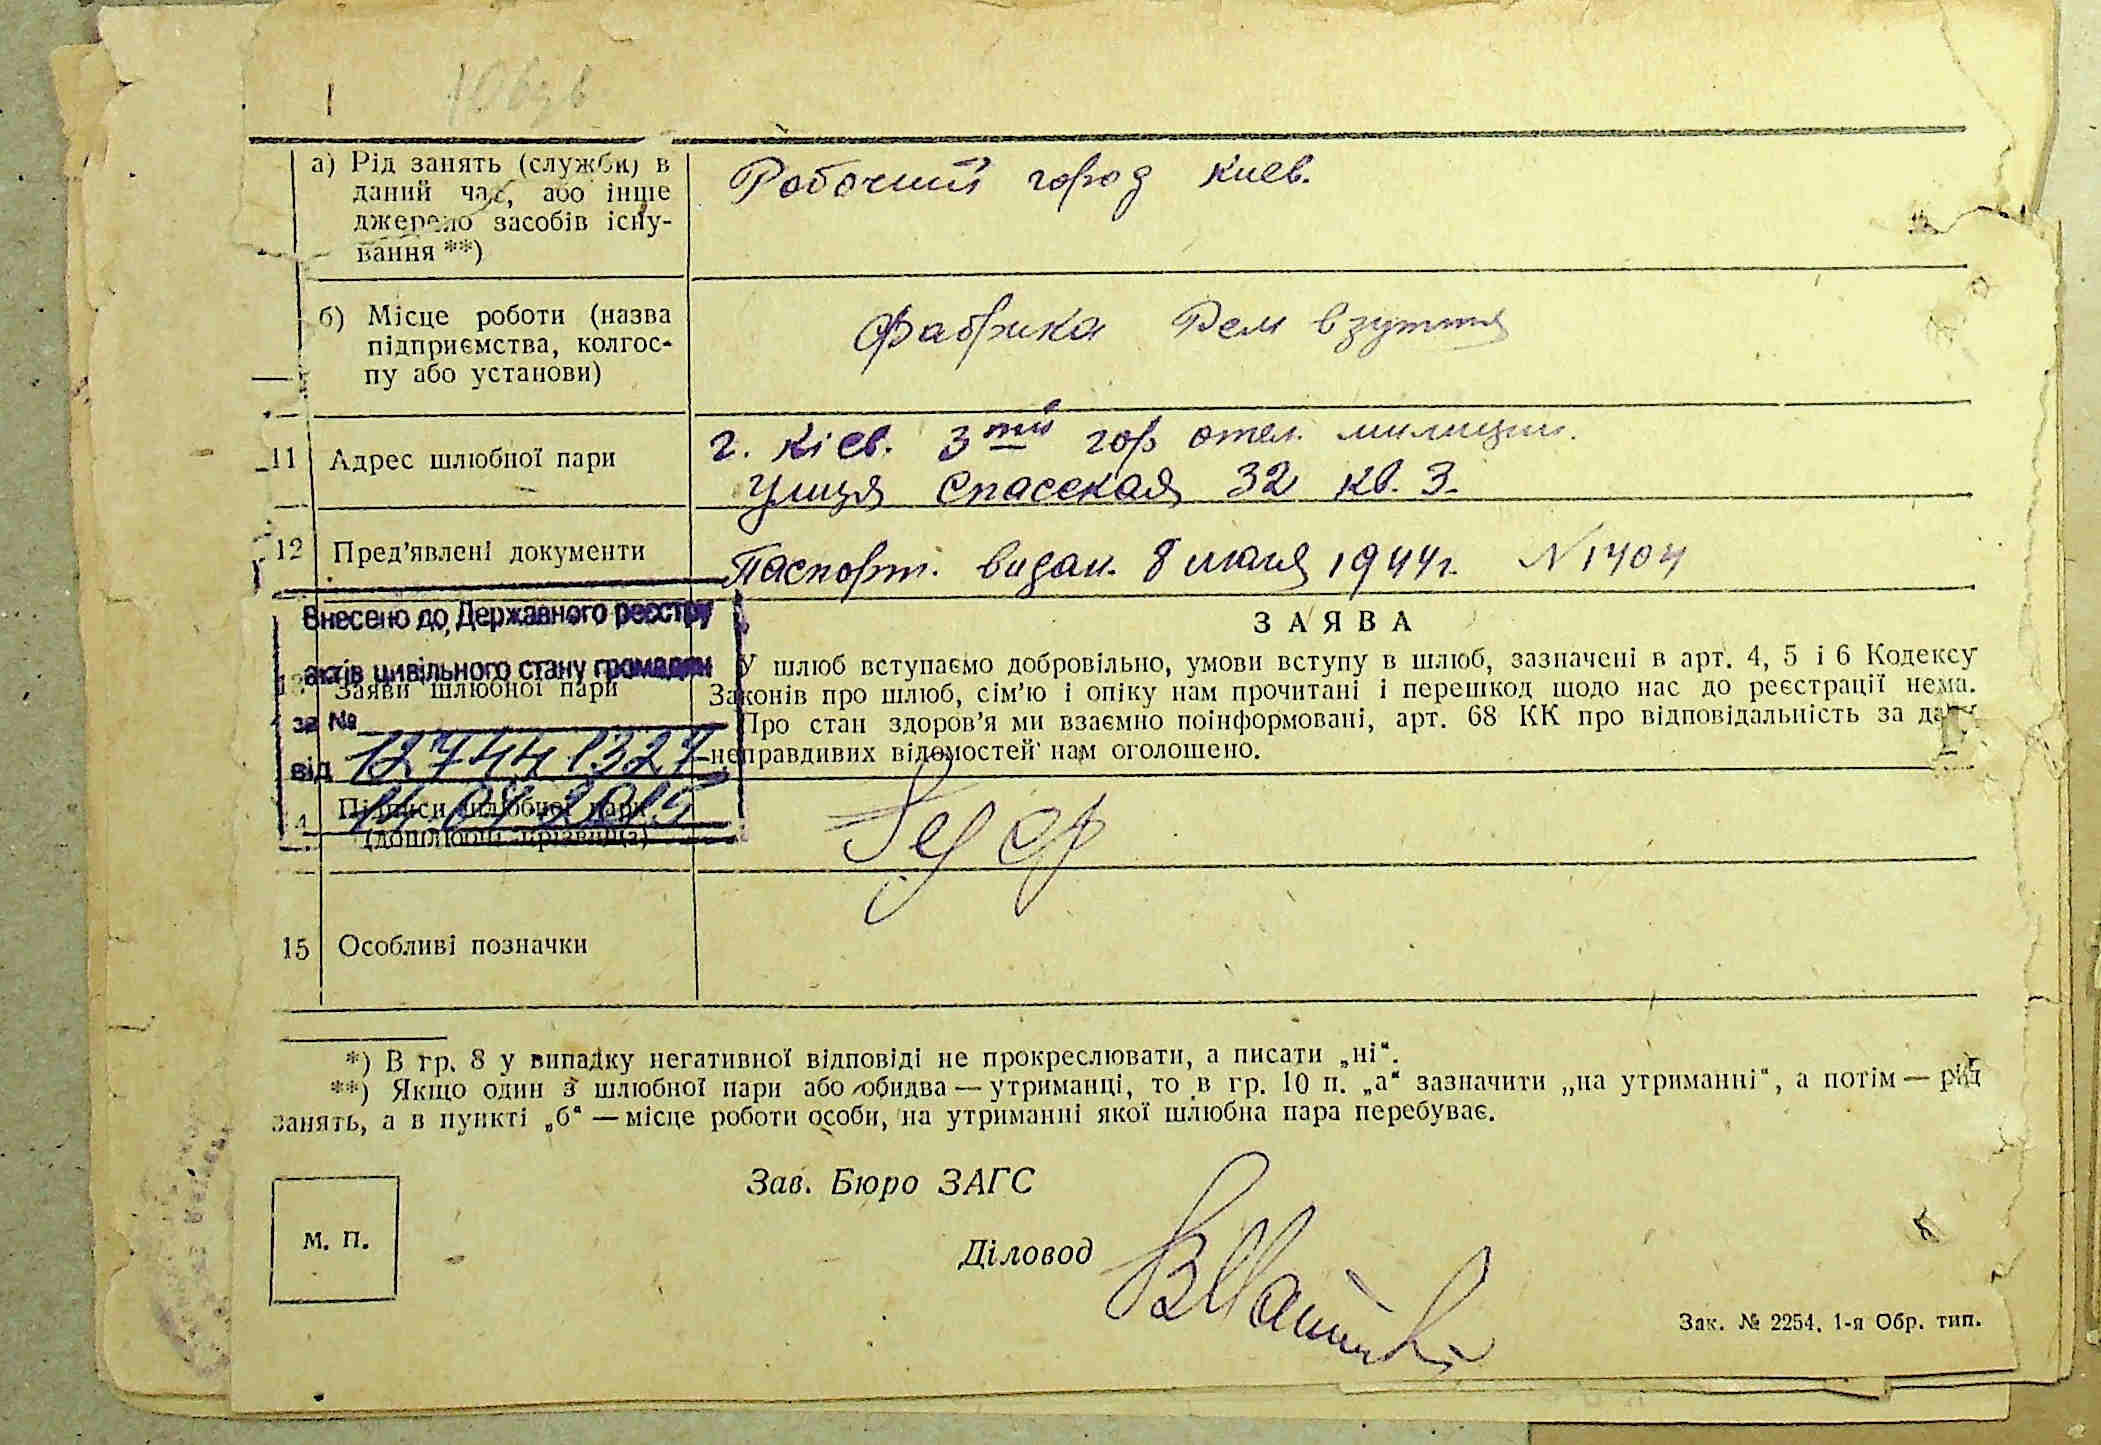 а) Рід занять (служби) в
даний час, або інше
джерело засобів існу-
вання **)
Робочий город Киев.
б) Місце роботи (назва
підприємства, колгос-
пу або установи)
Фабрика Рем взуття
11 Адрес шлюбної пари
г. Кіев. 3 тий гор отел. милиции.
улиця Спасская 32 кв. 3.
12 Пред'явлені документи
Паспорт. видан. 8 июля 1944г. N 1404
Внесено до Державного реєстру
актів цивільного стану громадян
за №
12744 1327
від
13 Заяви шлюбної пари
ЗАЯВА
У шлюб вступаємо добровільно, умови вступу в шлюб, зазначені в арт. 4, 5 і 6 Кодексу
Законів про шлюб, сім'ю і опіку нам прочитані і перешкод щодо нас до реєстрації нема.
Про стан здоров'я ми взаємно поінформовані, арт. 68 КК про відповідальність за дачу
неправдивих відомостей нам оголошено.
Підписи шлюбної пари
(дошлюбні прізвища)
15 Особливі позначки
*) В гр. 8 у випадку негативної відповіді не прокреслювати, а писати „ні“.
**) Якщо один з шлюбної пари або обидва — утриманці, то в гр. 10 п. „а“ зазначити „на утриманні“, а потім — рід
занять, а в пункті „б“ — місце роботи особи, на утриманні якої шлюбна пара перебуває.
Зав. Бюро ЗАГС
м. п.
Діловод
Зак. № 2254, 1-я Обр. тип.